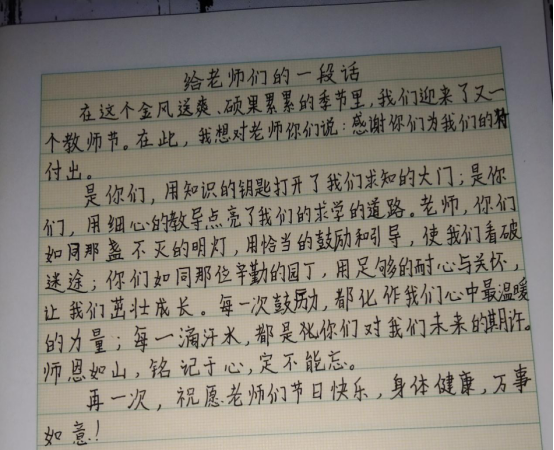 给老师们的一段话
在这个金风送爽、硕果累累的季节里,我们迎来了又一
个教师节。在此,我想对老师你们说:感谢你们为我们的
付出。
是你们,用知识的钥匙打开了我们求知的大门;是你
们,用细心的教导点亮了我们的求学的道路。老师,你们
如同那盏不灭的明灯,用恰当的鼓励和引导,使我们看破
迷途;你们如同那位辛勤的园丁,用足够的耐心与关怀,
让我们茁壮成长。每一次鼓励,都化作我们心中最温暖
的力量;每一滴汗水,都是化你们对我们未来的期许。
师恩如山,铭记于心,定不能忘。
再一次,祝愿老师们节日快乐,身体健康,万事
如意!